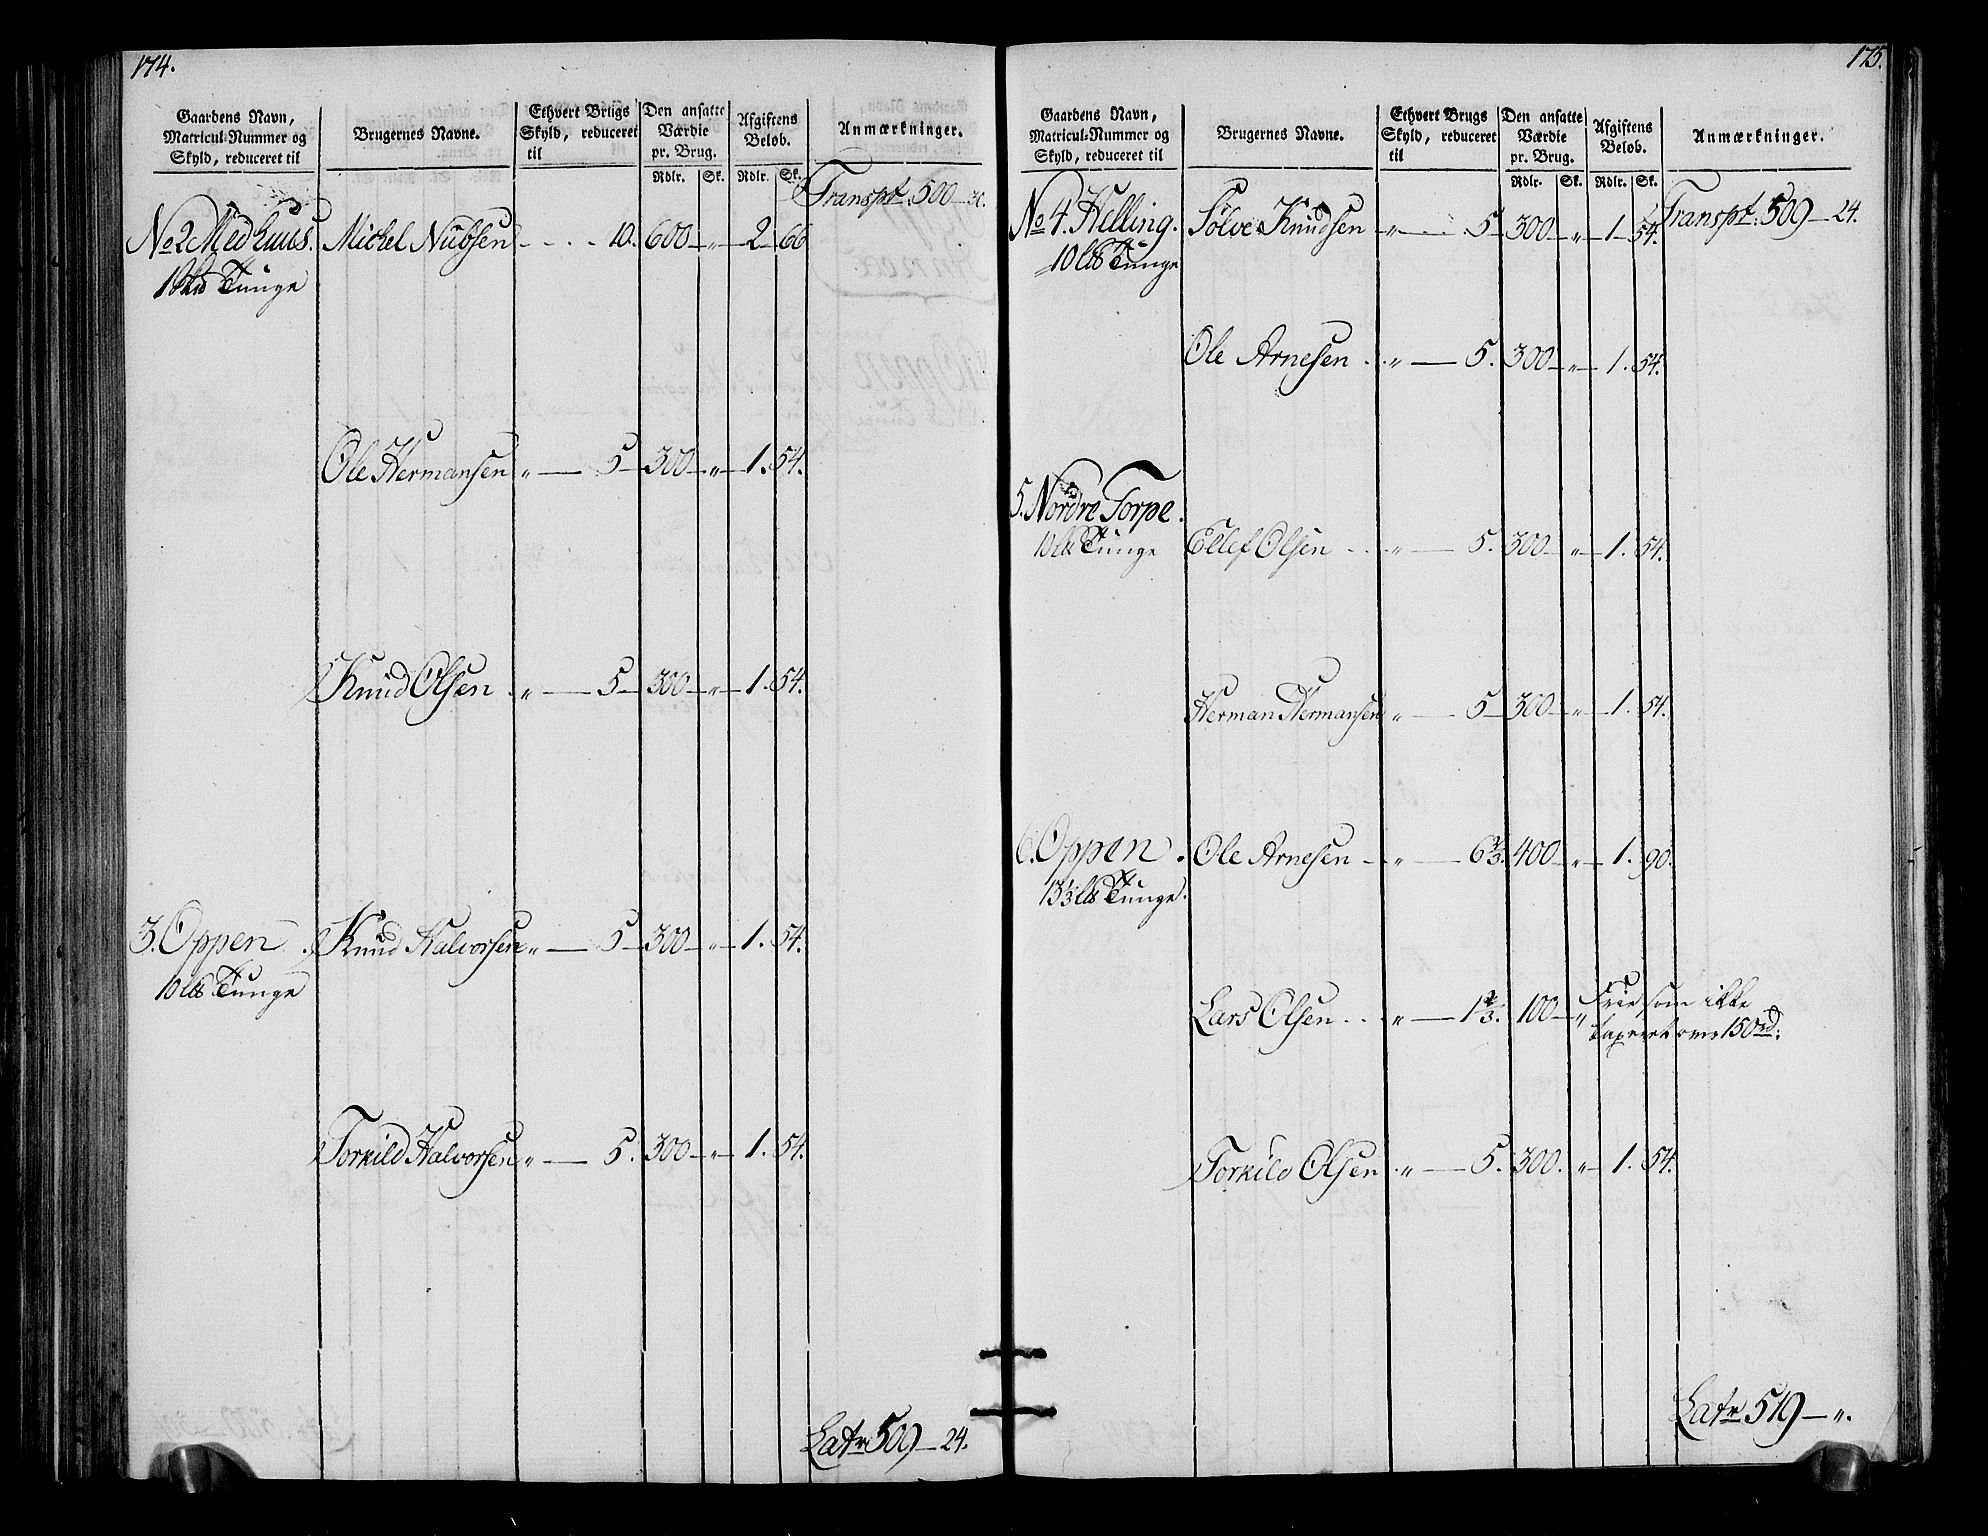 174.
Gaardens Navn, Matricul-Nummer og Skyld, reduceret til | Brugernes Navne. | Ethvert Brugs Skyld, reduceret til | Den ansatte Værdie pr. Brug. Rdlr. Sk. | Afgiftens Beløb. Rdlr. Sk. | Anmærkninger.
Transpt. 500 — 30.
No 2 Medhuus. Michel Nubsen - - - 10. 600 — „ — 2 — 66
Tunge
Ole Hermansen „ — 5 — 300 — „ — 1. 54.
Knud Olsen „ — 5 — 300 — „ — 1. 54.
3. Oppen. Knud Halvorsen „ — 5 — 300 — „ — 1. 54.
10 lb Tunge
Torkild Halvorsen „ — 5. 300 — „ — 1. 54.
Latr 509 — 24.
175.
Gaardens Navn, Matricul-Nummer og Skyld, reduceret til | Brugernes Navne. | Ethvert Brugs Skyld, reduceret til | Den ansatte Værdie pr. Brug. Rdlr. Sk. | Afgiftens Beløb. Rdlr. Sk. | Anmærkninger.
Transpt. 509 — 24.
No 4. Helling. Sölve Knudsen „ — 5 — 300 — „ — 1 — 54.
10 lb Tunge
Ole Arnesen - „ — 5. 300 — „ — 1. 54.
5. Nordre Torpe. Ellef Olsen - - „ — 5. 300 — „ — 1. 54.
10 lb Tunge
Herman Hermansen „ — 5 — 300 — „ — 1. 54.
6. Oppen. Ole Arnesen - „ — 6 2/3. 400 — „ — 1. 90.
13 1/3 lb Tunge.
Lars Olsen - - „ — 1 2/3. 100 — „ Frie som ikke
taxeret over 150 rd.
Torkild Olsen - „ — 5. 300. „ — 1. 54.
Latr 519 — „.